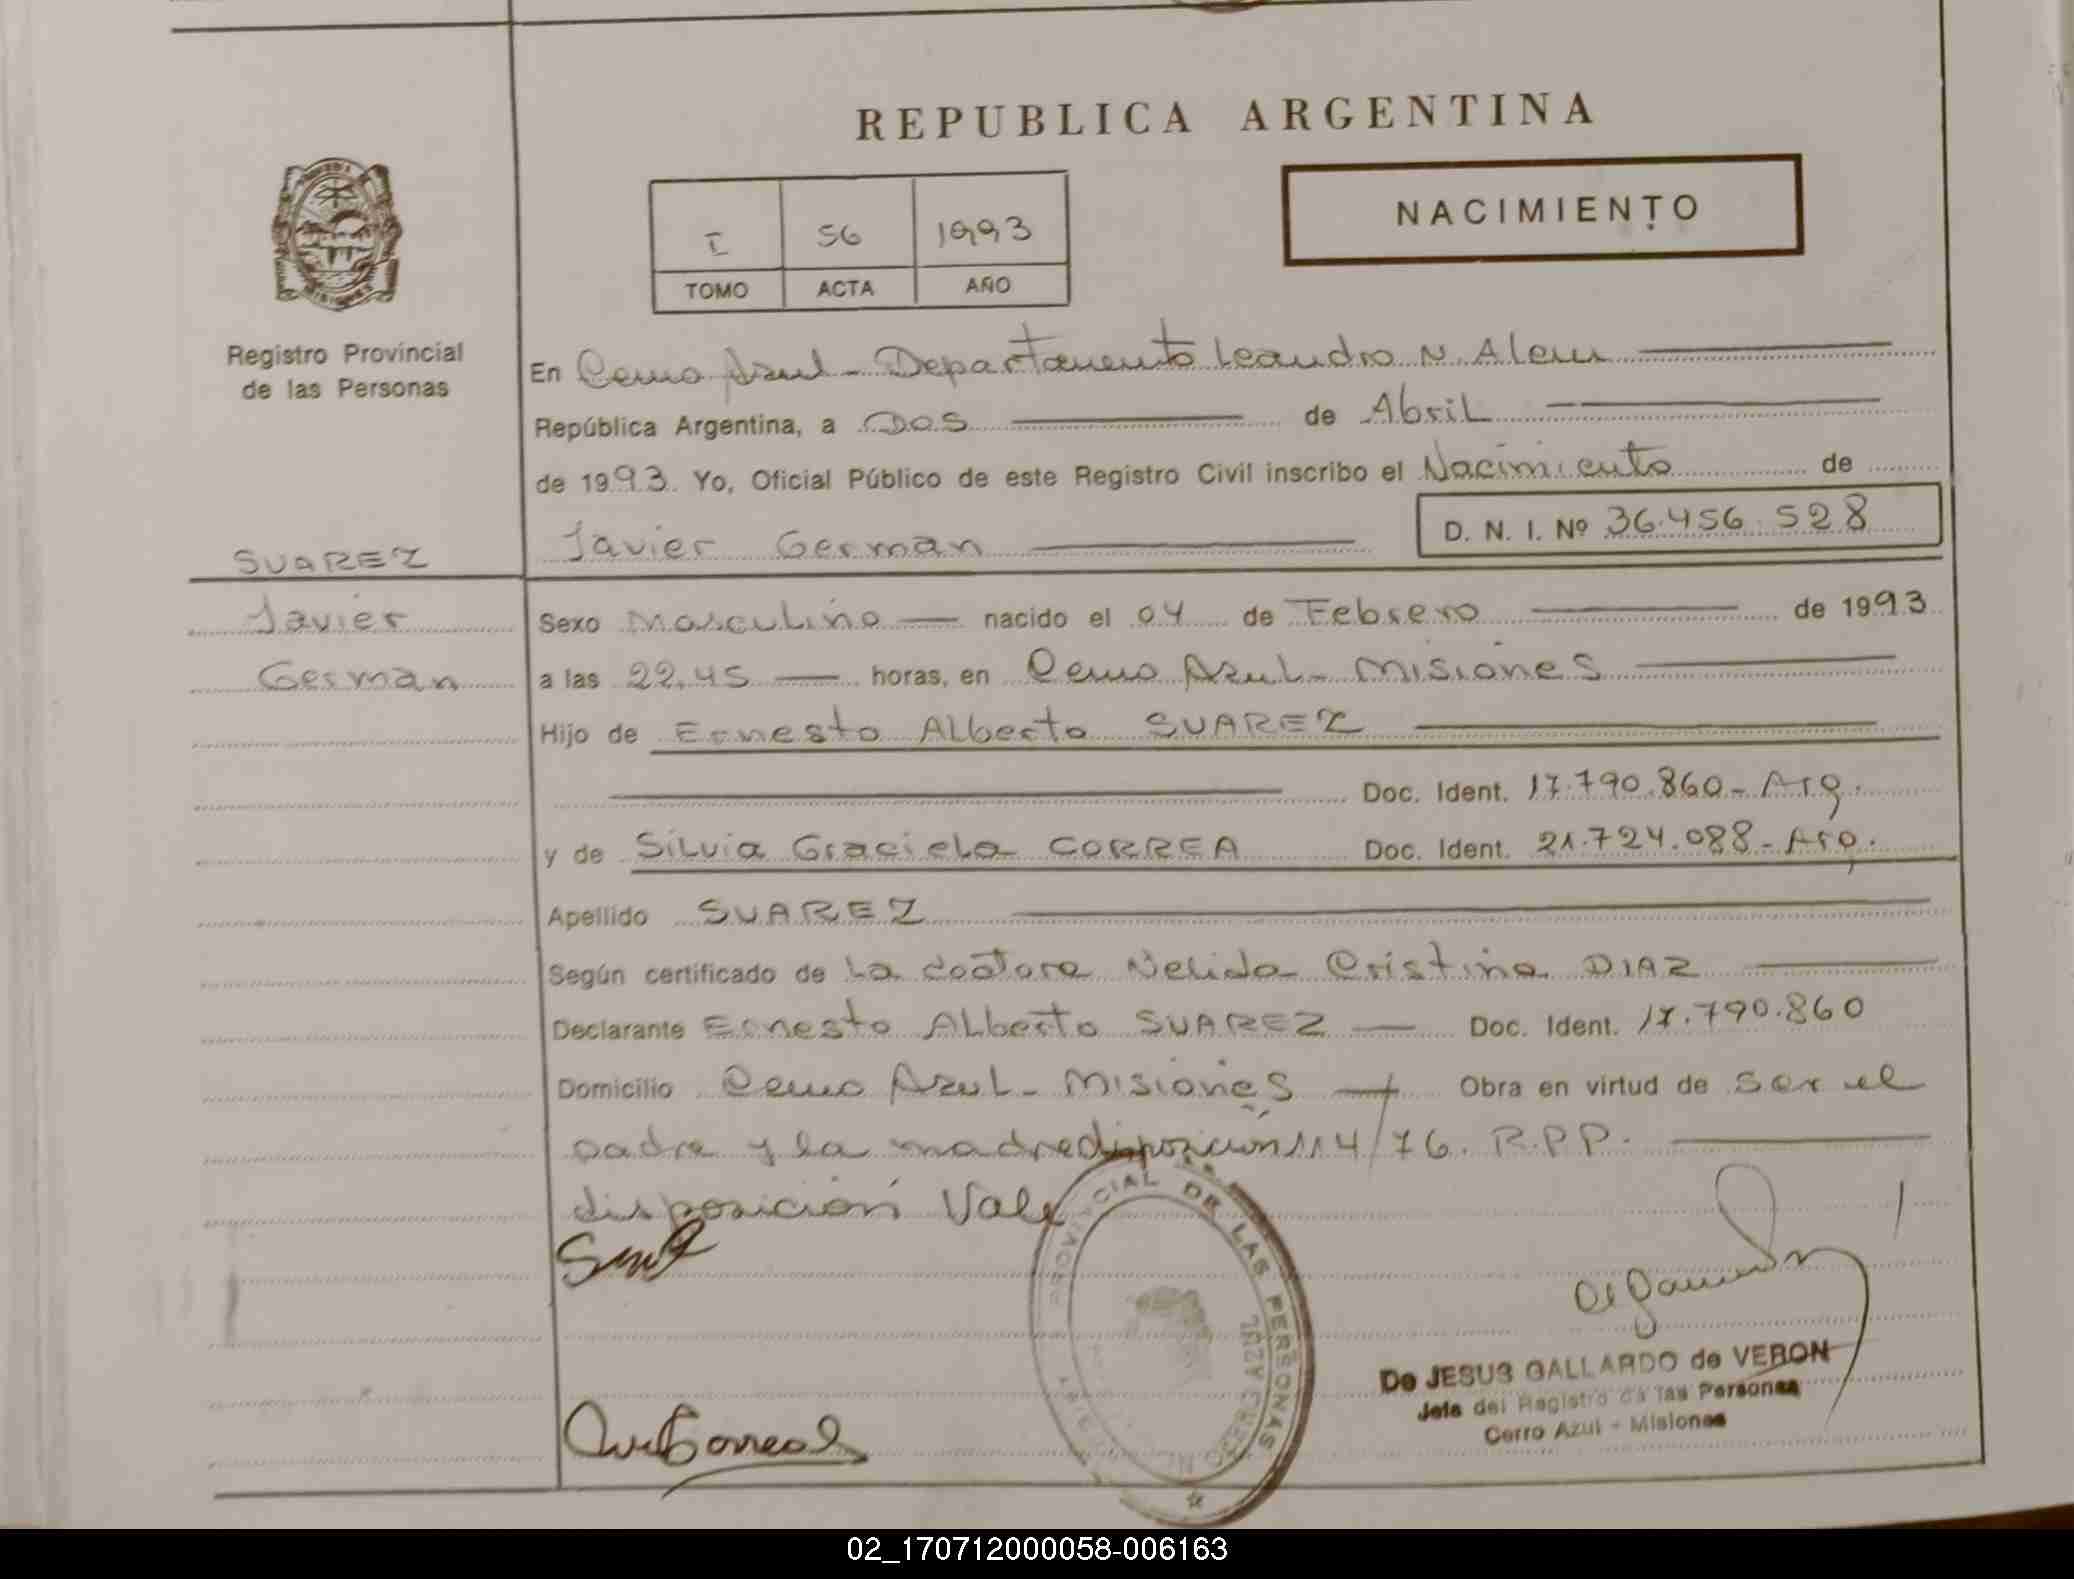 REPUBLICA ARGENTINA
I 56 1993
TOMO ACTA AÑO
NACIMIENTO
Registro Provincial
de las Personas
SUAREZ
Javier
German
En Cerro Azul - Departamento Leandro N. Alem
República Argentina, a Dos de Abril
de 1993. Yo, Oficial Público de este Registro Civil inscribo el Nacimiento de
Javier German D. N. I. Nº 36.456.528
Sexo Masculino nacido el 04 de Febrero de 1993
a las 22,45 horas, en Cerro Azul - Misiones
Hijo de Ernesto Alberto SUAREZ
Doc. Ident. 17.790.860 - Arg.
y de Silvia Graciela CORREA Doc. Ident. 21.724.088 - Arg.
Apellido SUAREZ
Según certificado de La doctora Nelida Cristina DIAZ
Declarante Ernesto Alberto SUAREZ Doc. Ident. 17.790.860
Domicilio Cerro Azul - Misiones Obra en virtud de ser el
padre y la madre disposición 114/76. R.P.P.
disposición Vale
PROVINCIAL DE LAS PERSONAS
CERRO AZUL
De JESUS GALLARDO de VERON
Jefe del Registro de las Personas
Cerro Azul - Misiones
02_170712000058-006163